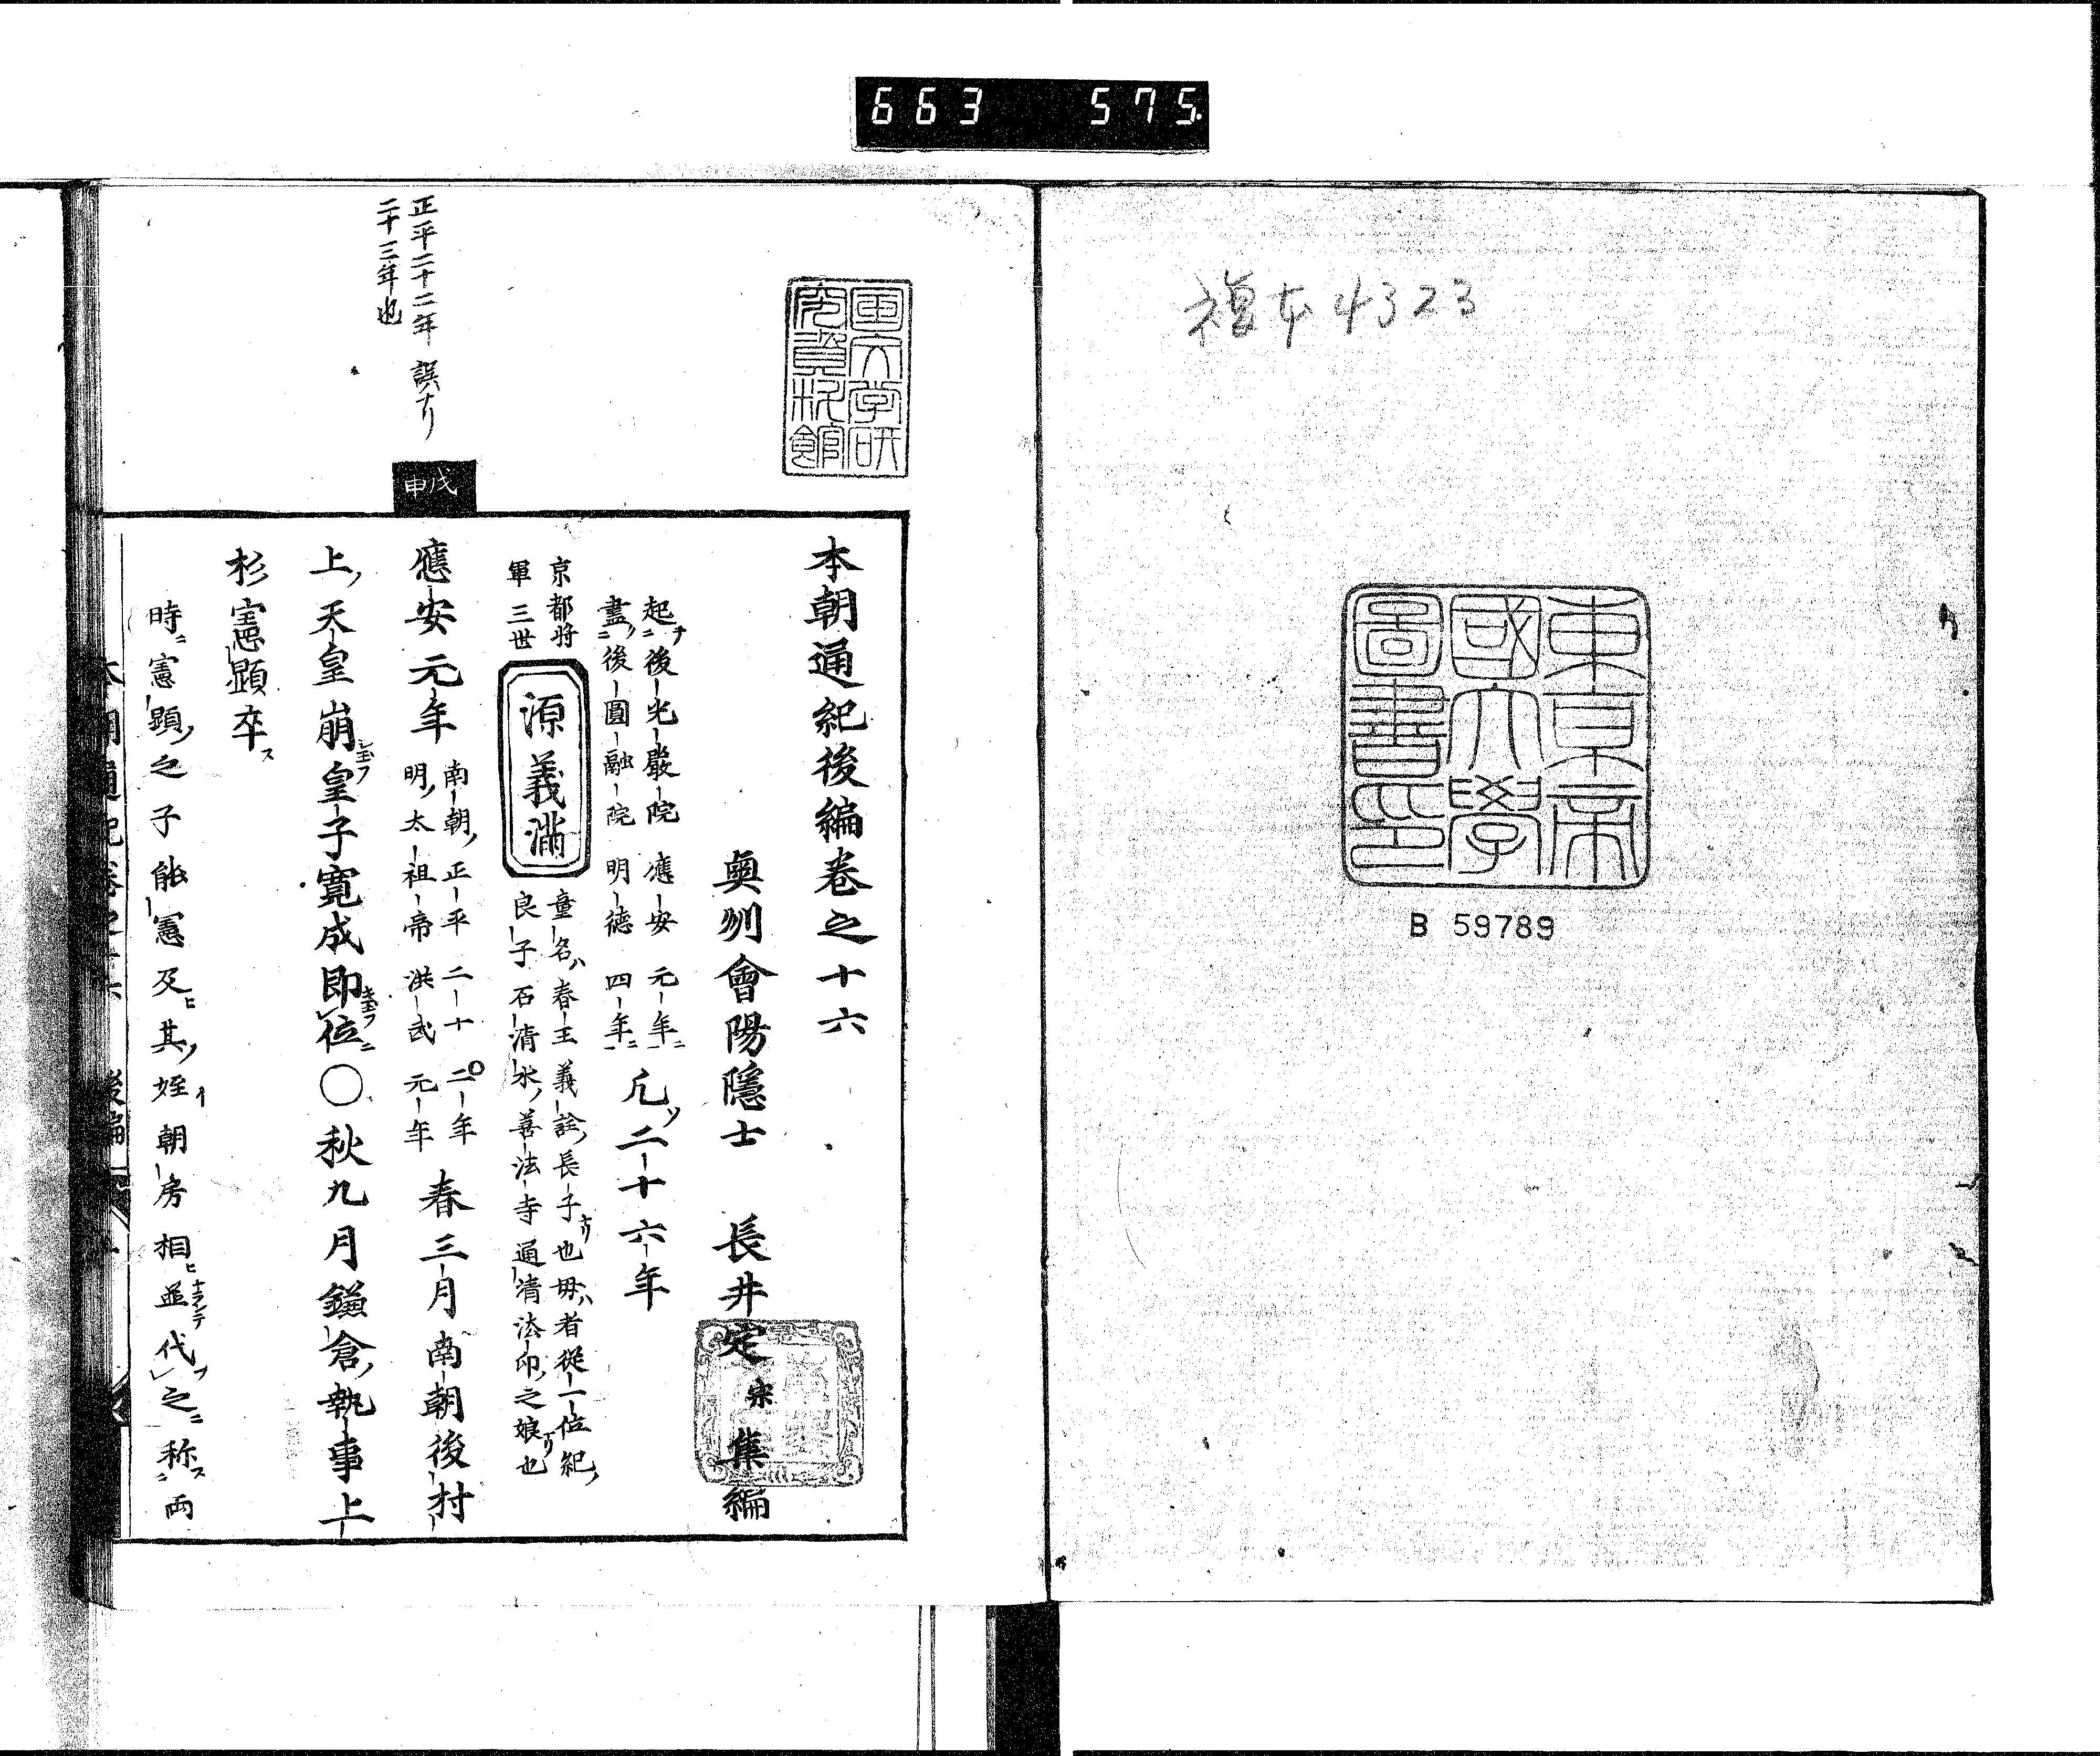 663 575
複本4323
東京帝
國大學
圖書印
B 59789
国文学研
究資料館
正平二十二年 誤ナリ
二十三年也
戊申
本朝通紀後編巻之十六
奥州會陽隱士 長井定宗集編
起後光嚴院 應安元年
盡後圓融院 明德四年
凡二十六年
京都将
軍三世
源義満
童名ハ春王義詮ノ長子也母ハ者從一位紀ノ
良子石清水ノ善法寺通清法印ノ之娘也
應安元年
南朝ノ正平二十二年
明ノ太祖帝洪武元年
春三月南朝後村
上ノ天皇崩皇子寛成即位〇秋九月鎌倉ノ執事上
杉憲顕卒ス
時ニ憲顕ノ之子能憲及ヒ其ノ姪朝房相ヒ並代之ニ称ス両